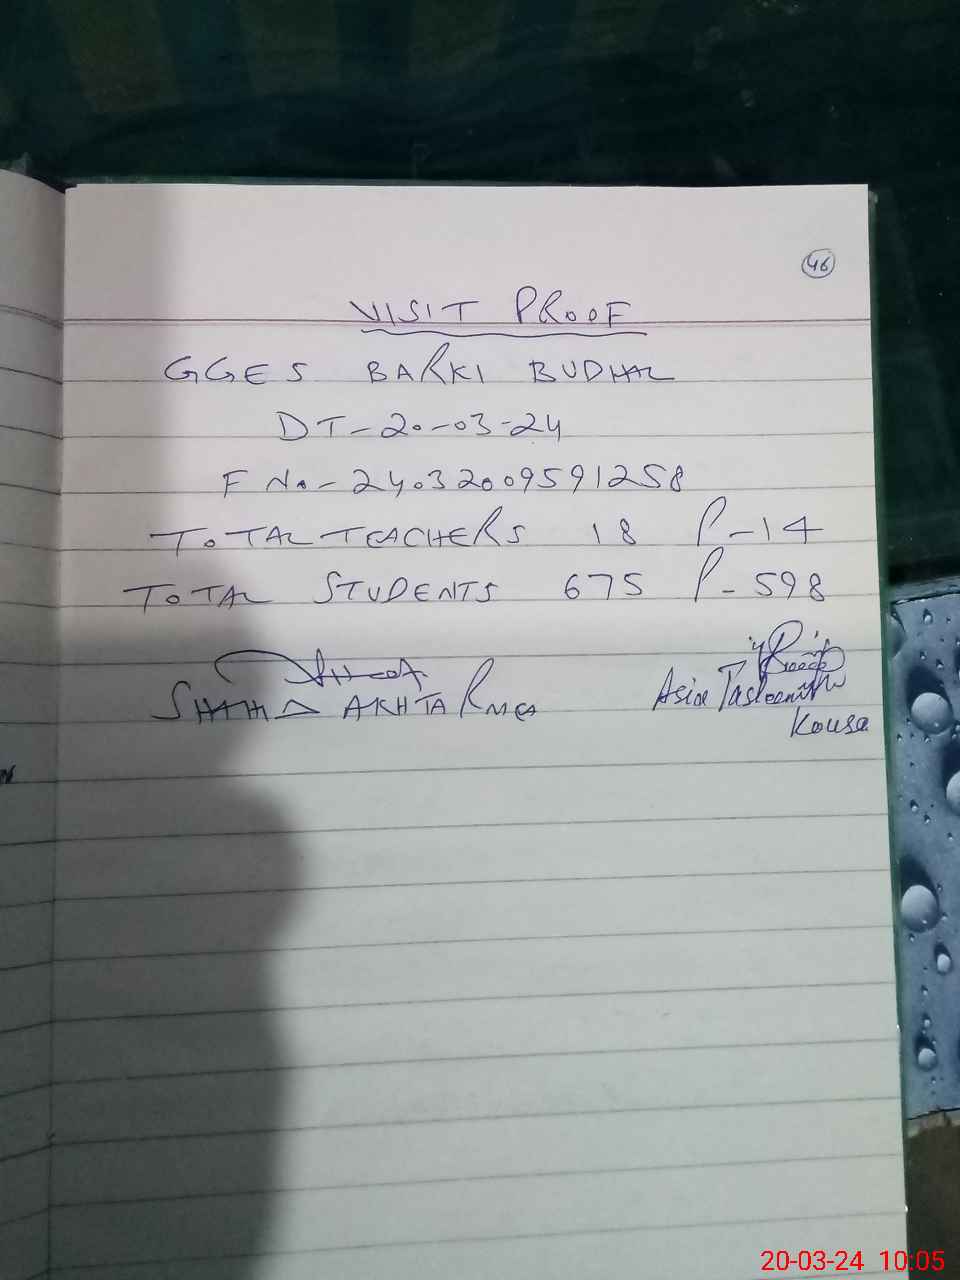 46
VISIT PROOF
GGES BARKI BUDHAL
DT-20-03-24
F No.- 24032009591258
TOTAL TEACHERS 18 P-14
TOTAL STUDENTS 675 P-598
AKHTAR MEA
Asia Tasleem
Kousa
20-03-24 10:05